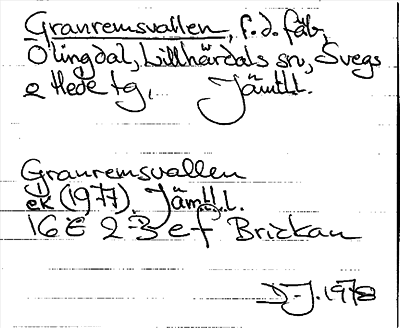 Granremsvallen, f.d. fäb,
Olingdal, Lillhärdals sn, Svegs
o Hede tg, Jämtl.l.
Granremsvallen
ek (1977) Jämtl.l.
16E 2-3 e f Brickan
D-J. 1978